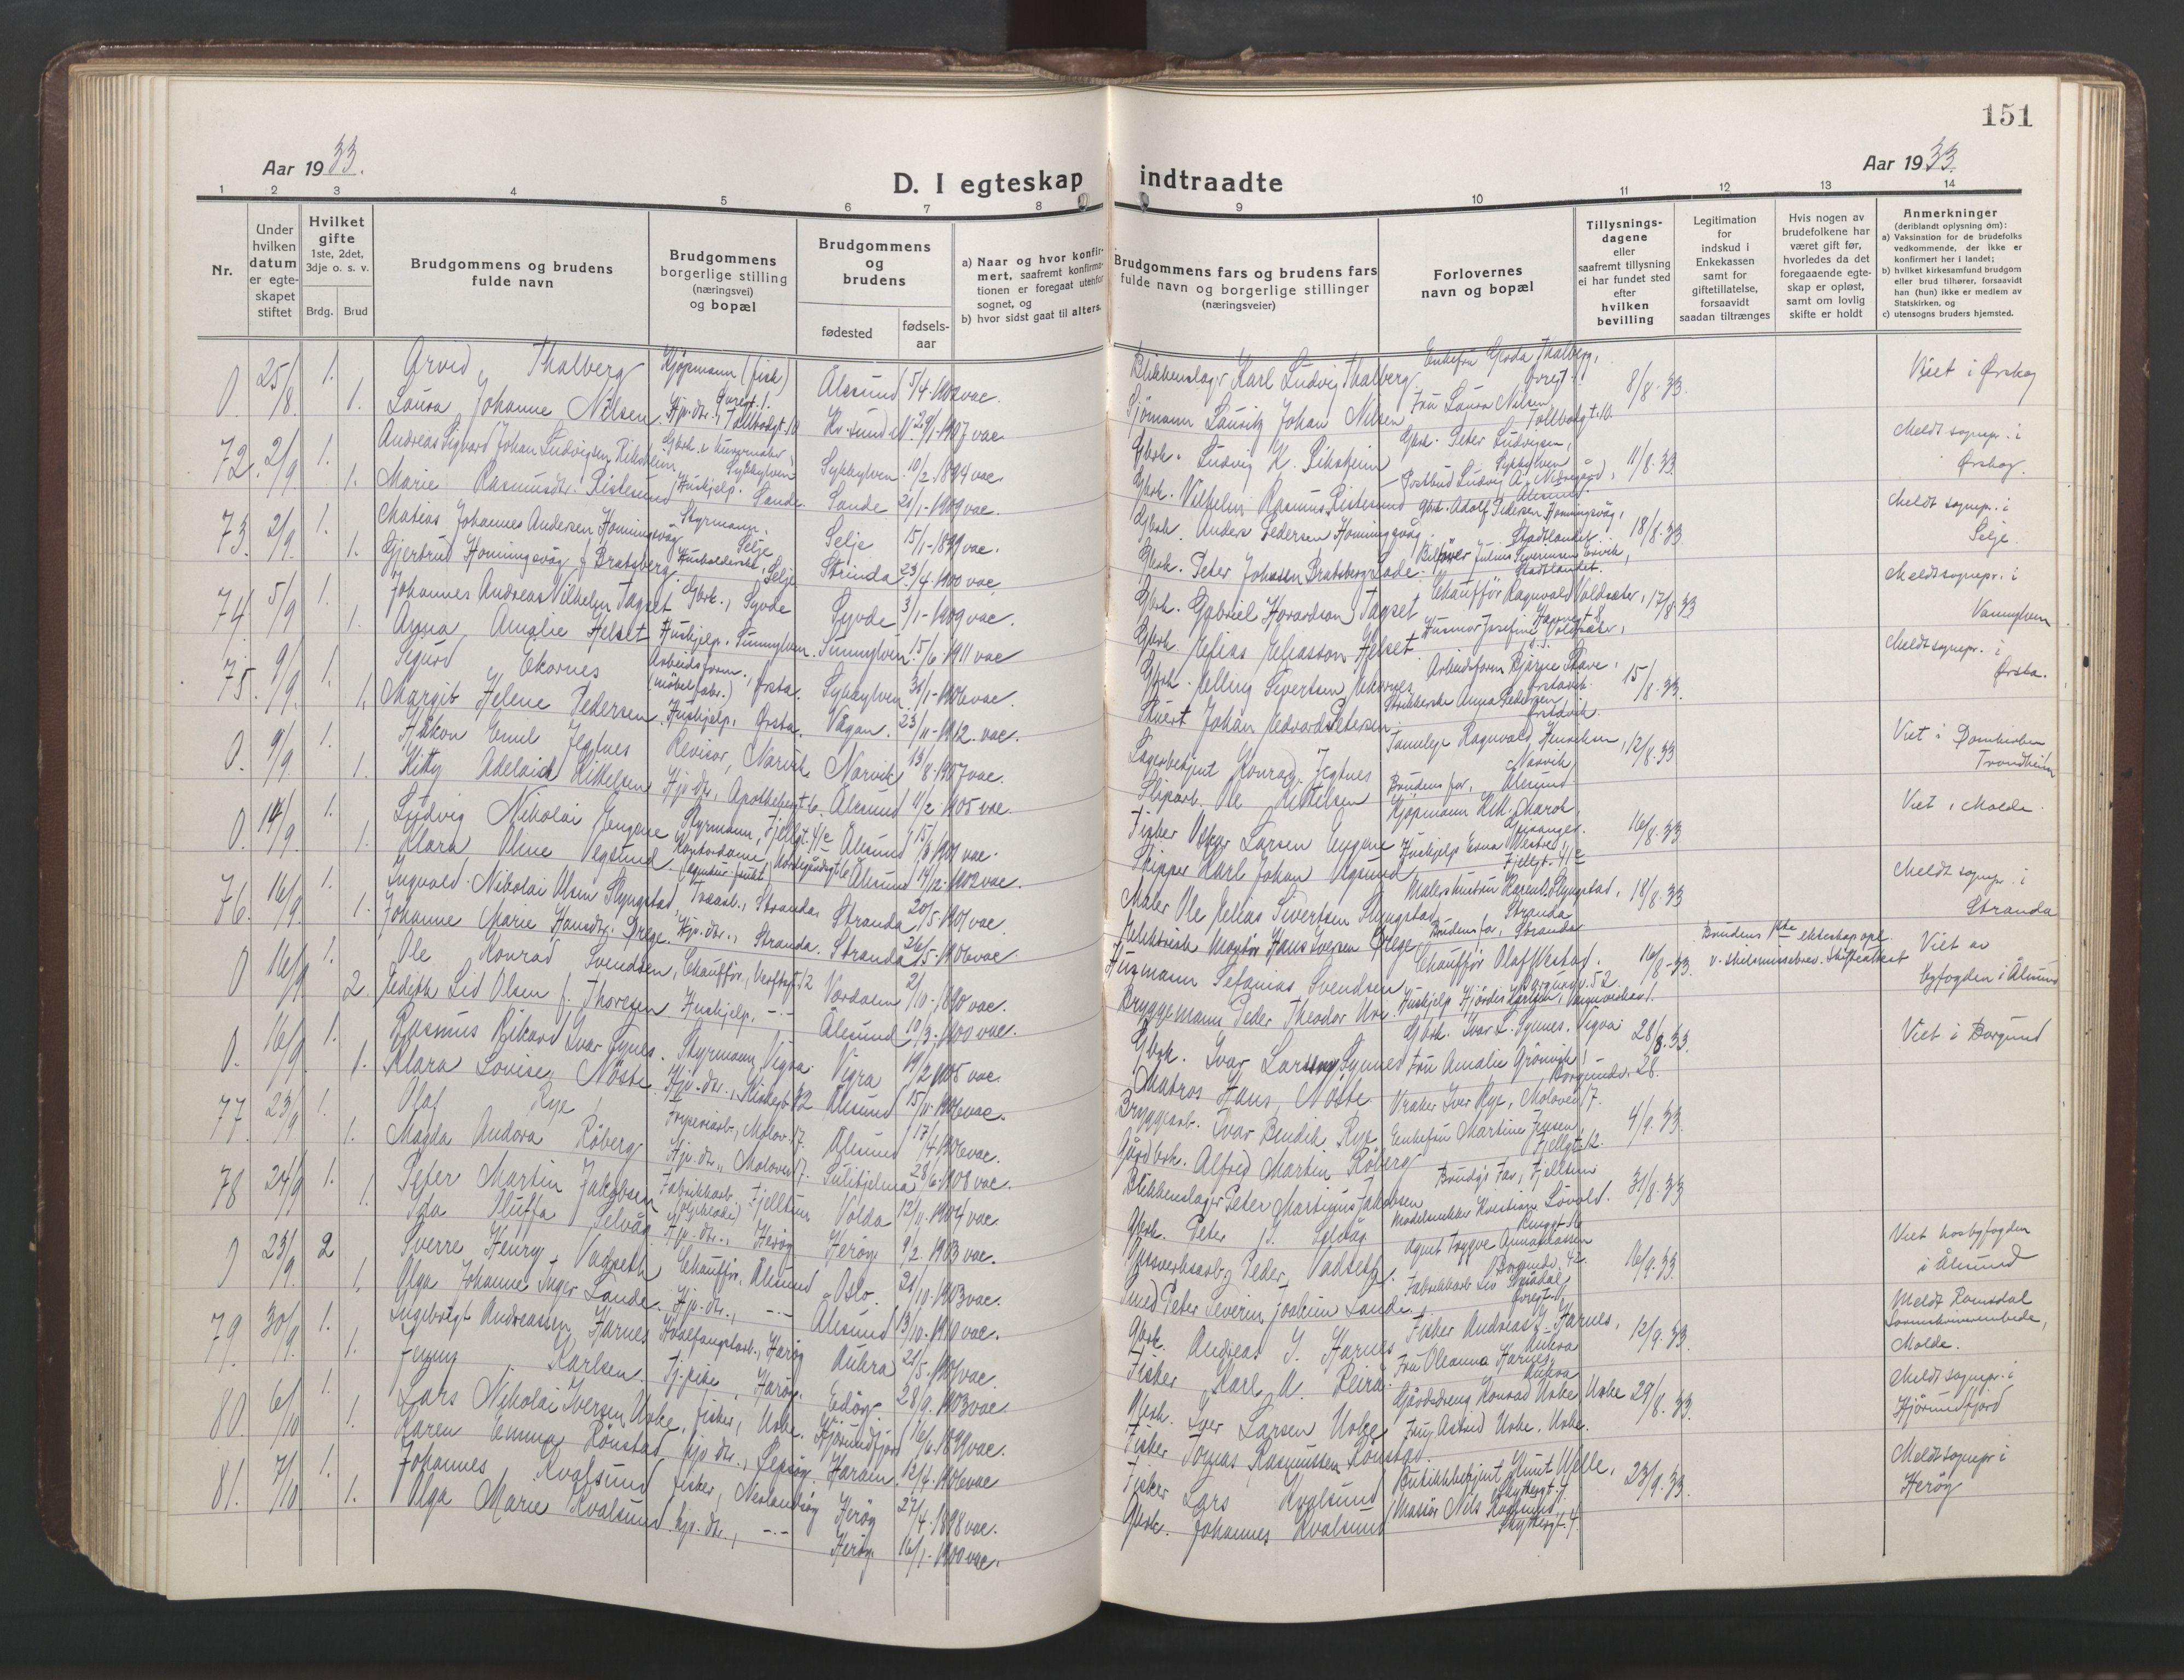 151
Aar 1933.
Aar 1933.
D. I egteskap indtraadte
1 2 3 4 5 6 7 8 9 10 11 12 13 14
Nr.
Under hvilken datum er egteskapet stiftet
Hvilket gifte 1ste, 2det, 3dje o. s. v.
Brdg. Brud
Brudgommens og brudens fulde navn
Brudgommens borgerlige stilling (næringsvei) og bopæl
Brudgommens og brudens
fødested
fødsels-aar
a) Naar og hvor konfirmert, saafremt konfirmationen er foregaat utenfor sognet, og
b) hvor sidst gaat til alters.
Brudgommens fars og brudens fars fulde navn og borgerlige stillinger (næringsveier)
Forlovernes navn og bopæl
Tillysningsdagene eller saafremt tillysning ei har fundet sted efter hvilken bevilling
Legitimation for indskud i Enkekassen samt for giftetillatelse, forsaavidt saadan tiltrænges
Hvis nogen av brudefolkene har været gift før, hvorledes da det foregaaende egteskap er opløst, samt om lovlig skifte er holdt
Anmerkninger (deriblandt oplysning om):
a) Vaksination for de brudefolks vedkommende, der ikke er konfirmert her i landet;
b) hvilket kirkesamfund brudgom eller brud tilhører, forsaavidt han (hun) ikke er medlem av Statskirken, og
c) utensogns bruders hjemsted.
0 25/8 1. Arvid Thalberg Kjøpmann (fisk) Øvregt. 1. Ålesund 5/4-1902 vac. Blikkenslager Karl Ludvig Thalberg Enkefru Gloda Thalberg, Øvregt. 1. 8/8-33. Viet i Ørskog
1. Laura Johanne Nilsen Hjv. dtr., Tollbodgt. 10 Kr.sund N. 29/1-1907 vac. Sjømann Lauritz Johan Nilsen Fru Laura Nilsen, Tollbodgt. 10.
72. 2/9 1. Andreas Sigvard Johan Ludvigsen Riksheim Gbrk. Sykkylven Sykkylven 10/2-1894 vac. Gbrk. Ludvig K. Riksheim Gbrk. Peter Ludvigsen, Sykkylven 11/8-33. Meldt sognepr. i Ørskog.
1. Marie Rasmusdtr. Ristesund Hushjelp. Sande Sande 21/1-1909 vac. Gbrk. Vilhelm Rasmus Ristesund Postbud Ludvig A. Nedregård, Ålesund.
73. 2/9 1. Matias Johannes Andersen Honningsvåg Styrmann, Selje Selje 15/1-1899 vac. Gbrk. Anders Pedersen Honningsvåg Gbrk. Adolf Pedersen Honningsvåg, Stadtlandet. 18/8-33. Meldt sognepr. i Selje
1. Gjertrud Honningsvåg f. Bratsberg. Husholderske, Selje Strinda 23/4-1900 vac. Gbrk. Peter Johnsen Bratsberg Lade. Julius Severinsen Ervik, Stadtlandet.
74. 5/9 1. Johannes Andreas Vilhelm Tagset Gbrk., Syvde Syvde 3/1-1909 vac. Gbrk. Gabriel Hovardson Tagset Chauffør Ragnvald Voldsæter, 17/8-33 Meldt sognepr. i Vannylven
1. Anna Amalie Helset Hushjelp, Sunnylven. Sunnylven 15/6-1911 vac Gbrk. Elias Eliasson Helset Husmor Josefine Voldsæter,
75. 9/9 1. Sigurd Ekornes Arbeidsform. (møbelfabr.) Ørsta. Sykkylven 31/1-1906 vac. Gbrk. Elling Sivertsen Ekornes Arbeidsform. Bjarne Skare, Ørstavik. 15/8-33. Meldt sognepr. i Ørsta.
1. Margit Helene Pedersen Hushjelp, Ørsta. Vågan. 23/11-1912. vac. Stuert Johan Edvard Petersen Strikkerske Anna Pedersen Ørstavik.
0. 9/9 1. Håkon Emil Jegtnes Revisor, Narvik Narvik 13/8-1907 vac. Lagerbetjent Konrad Jegtnes Tannlege Ragnvald Henriksen, Narvik 12/8-33 Viet i Domkirken Trondheim
1. Kitty Adelaide Kittelsen Hjv. dtr., Apothekergt. 6. Ålesund 11/2-1905 vac. Sliparb. Ole Kittelsen Brudens far, Ålesund
0. 14/9 1. Ludvig Nikolai Eugene Styrmann, Fjellgt. 41c Ålesund 15/8-1901 vac. Fisker Oskar Larsen Eugene Kjøpmann Geiranger. 16/8-33 Viet i Molde.
1. Klara Oline Vegsund Kontordame, Ålesund 14/12-1902 vac. Skipper Karl Johan Vegsund Hushjelp Erna Fjellgt. 41c
76. 16/9 1. Ingvald Nikolai Olsen Slyngstad Træarb., Stranda Stranda 20/5-1901 vac. Maler Ole Elias Sivertsen Slyngstad Malershustru Karen L. Slyngstad, Stranda 18/8-33 Meldt sognepr. i Stranda
1. Johanne Marie Hansdtr. Drege Hjv. dtr., Stranda. Stranda 26/5-1906 vac. Elektrisk Montør Hans Iversen Drege Brudens far, Stranda
0 16/9 1. Ole Konrad Svendsen, Chauffør, Verftsgt. 12 Værdalen 21/10-1890 vac. Husmann Sefanias Svendsen Chauffør Olaf Westad, Borgundv. 52. 16/8-33. Brudens 1ste ekteskap opl. v. skilsmissebev. Skifteattest Viet av byfogden i Ålesund
2. Edith Lid Olsen f. Thoresen Hushjelp, -"- Ålesund 10/3-1900 vac. Bryggemann Peder Theodor Uri Hushjelp Hjørdis Karlsen,
0. 16/9 1. Rasmus Rikard Ivar Synes. Styrmann, Vigra. Vigra 19/2-1905 vac. Gbrk. Ivar Larsen Synnes Gbrk. Ivar L. Synnes, Vigra 28/8-33. Viet i Borgund
1. Klara Lovise Nøste Hjv. dtr., Kirkegt. 32 Ålesund 15/11-1906 vac. Matros Hans Nøste Fru Amalie Grønvik, Borgundv. 28.
77. 23/9 1. Olaf Rye, Fryseriarb., Molov. 17. Ålesund 17/4-1906 vac. Bryggearb. Ivar Bendik Rye Vraker Iver Rye, Moloveien 17. 4/9-33.
1. Magda Andora Røberg Hjv. dtr., Moloveien 17. Sulitjelma 28/6-1908 vac. Gårdbrk. Alfred Martin Røberg Enkefru Martine Jensen Fjellgt. 12.
78 24/9 1. Peter Martin Jakobsen Fabrikkarb. Fjelltun Volda 12/11-1904 vac. Blikkenslager Peter Martinus Jakobsen Brudg's Far, Fjelltun 31/8-33
1. Ida Selvåg Hjv. dtr., Herøy Herøy 9/2-1903 vac. Gbrk. Peter J. Selvåg Modelsnekker Kristian Løvold.
0 23/9 2 Sverre Henry Vadseth Chauffør, Ålesund Oslo. 21/10-1903 vac. Gassverksarb. Peder Vadseth. Agent Trygve Borgundv. 42. 16/9-33. Viet hos byfogden i Ålesund
1. Olga Johanne Inger Lande. Hjv. dtr., -"- Ålesund 13/10-1910 vac. Smed Peter Severin Joakim Lande. Fabrikkarb. Øvregt.
79 30/9 1. Ingebrigt Andreassen Harnes Hvalfangstarb., Harøy Aukra 21/5-1901 vac. Gbrk. Andreas I. Harnes Fisker Andreas I. Harnes, Aukra 12/9-33. Meldt Romsdal Sorenskriverembede, Molde.
1. Jenny Karlsen. Tj. pike, Harøy. Edøy 28/9-1903 vac. Fisker Karl A. Reirå. Fru Oleanna Harnes, Aukra
80. 6/10 1. Lars Nikolai Iversen Urke, fisker, Urke. Hjørundfjord 16/6-1899 vac. Gbrk. Iver Larsen Urke Gårdsdreng Konrad Urke, Urke 29/8-33. Meldt sognepr. i Hjørundfjord
1. Karen Emma Rønstad hjv. dtr., Lepsøy. Haram. 12/4-1906 vac Fisker Tomas Rasmussen Rønstad. Fru Astrid Urke, Urke.
81. 7/10 1. Johannes Kvalsund fisker, Nerlandsøy Herøy 27/4-1898 vac. Fisker Lars Kvalsund Butikkbetjent Knut Welle, Skyttergt. 7. 23/9-33. Meldt sognepr. i Herøy
1. Olga Marie Kvalsund hjv. dtr., -"- Herøy. 16/1-1900 vac. Gbrk. Johannes Kvalsund Massør Nils Kvalsund Skyttergt. 4.